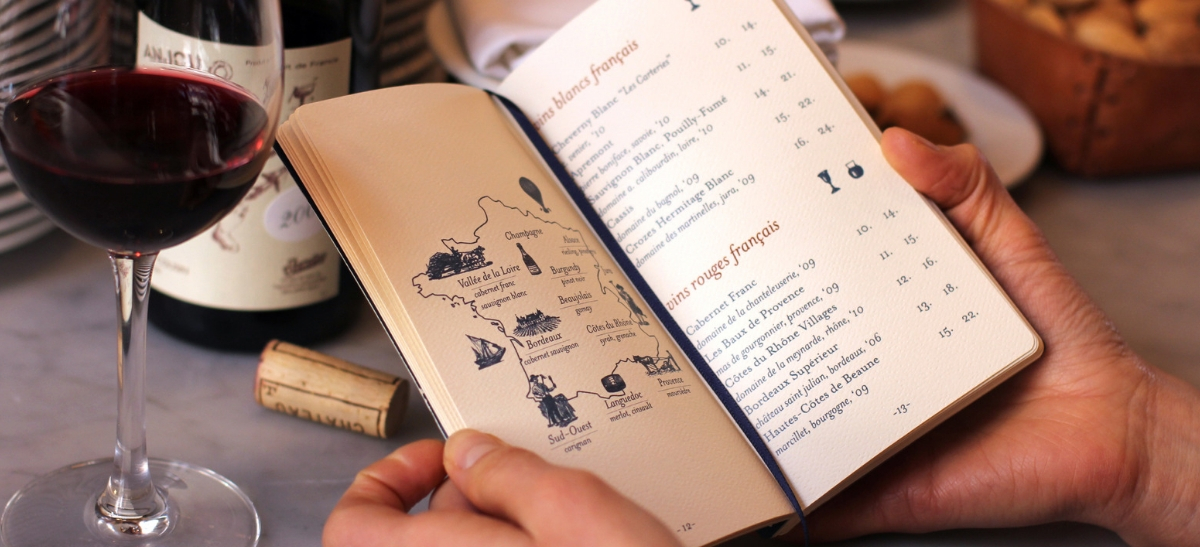 ANJOU
de France
CHATEAU
Champagne
Alsace
Vallée de la Loire
cabernet franc
sauvignon blanc
Burgundy
pinot noir
Beaujolais
gamay
Bordeaux
cabernet sauvignon
Côtes du Rhône
syrah, grenache
Provence
mourvèdre
Languedoc
merlot, cinsault
Sud-Ouest
carignan
-12-
vins blancs français
Cheverny Blanc "Les Carteries" 10. 14.
'10
Apremont 11. 15.
pierre boniface, savoie, '10
Sauvignon Blanc, Pouilly-Fumé 14. 21.
domaine a. calibourdin, loire, '10
Cassis 15. 22.
domaine du bagnol, '09
Crozes Hermitage Blanc 16. 24.
domaine des martinelles, jura, '09
vins rouges français
Cabernet Franc 10. 14.
domaine de la chanteleuserie, '09
Les Baux de Provence 11. 15.
mas de gourgonnier, provence, '09
Côtes du Rhône Villages 12. 16.
domaine de la meynarde, rhône, '10
Bordeaux Supérieur 13. 18.
château saint julian, bordeaux, '06
Hautes-Côtes de Beaune 15. 22.
marcillet, bourgogne, '09
-13-